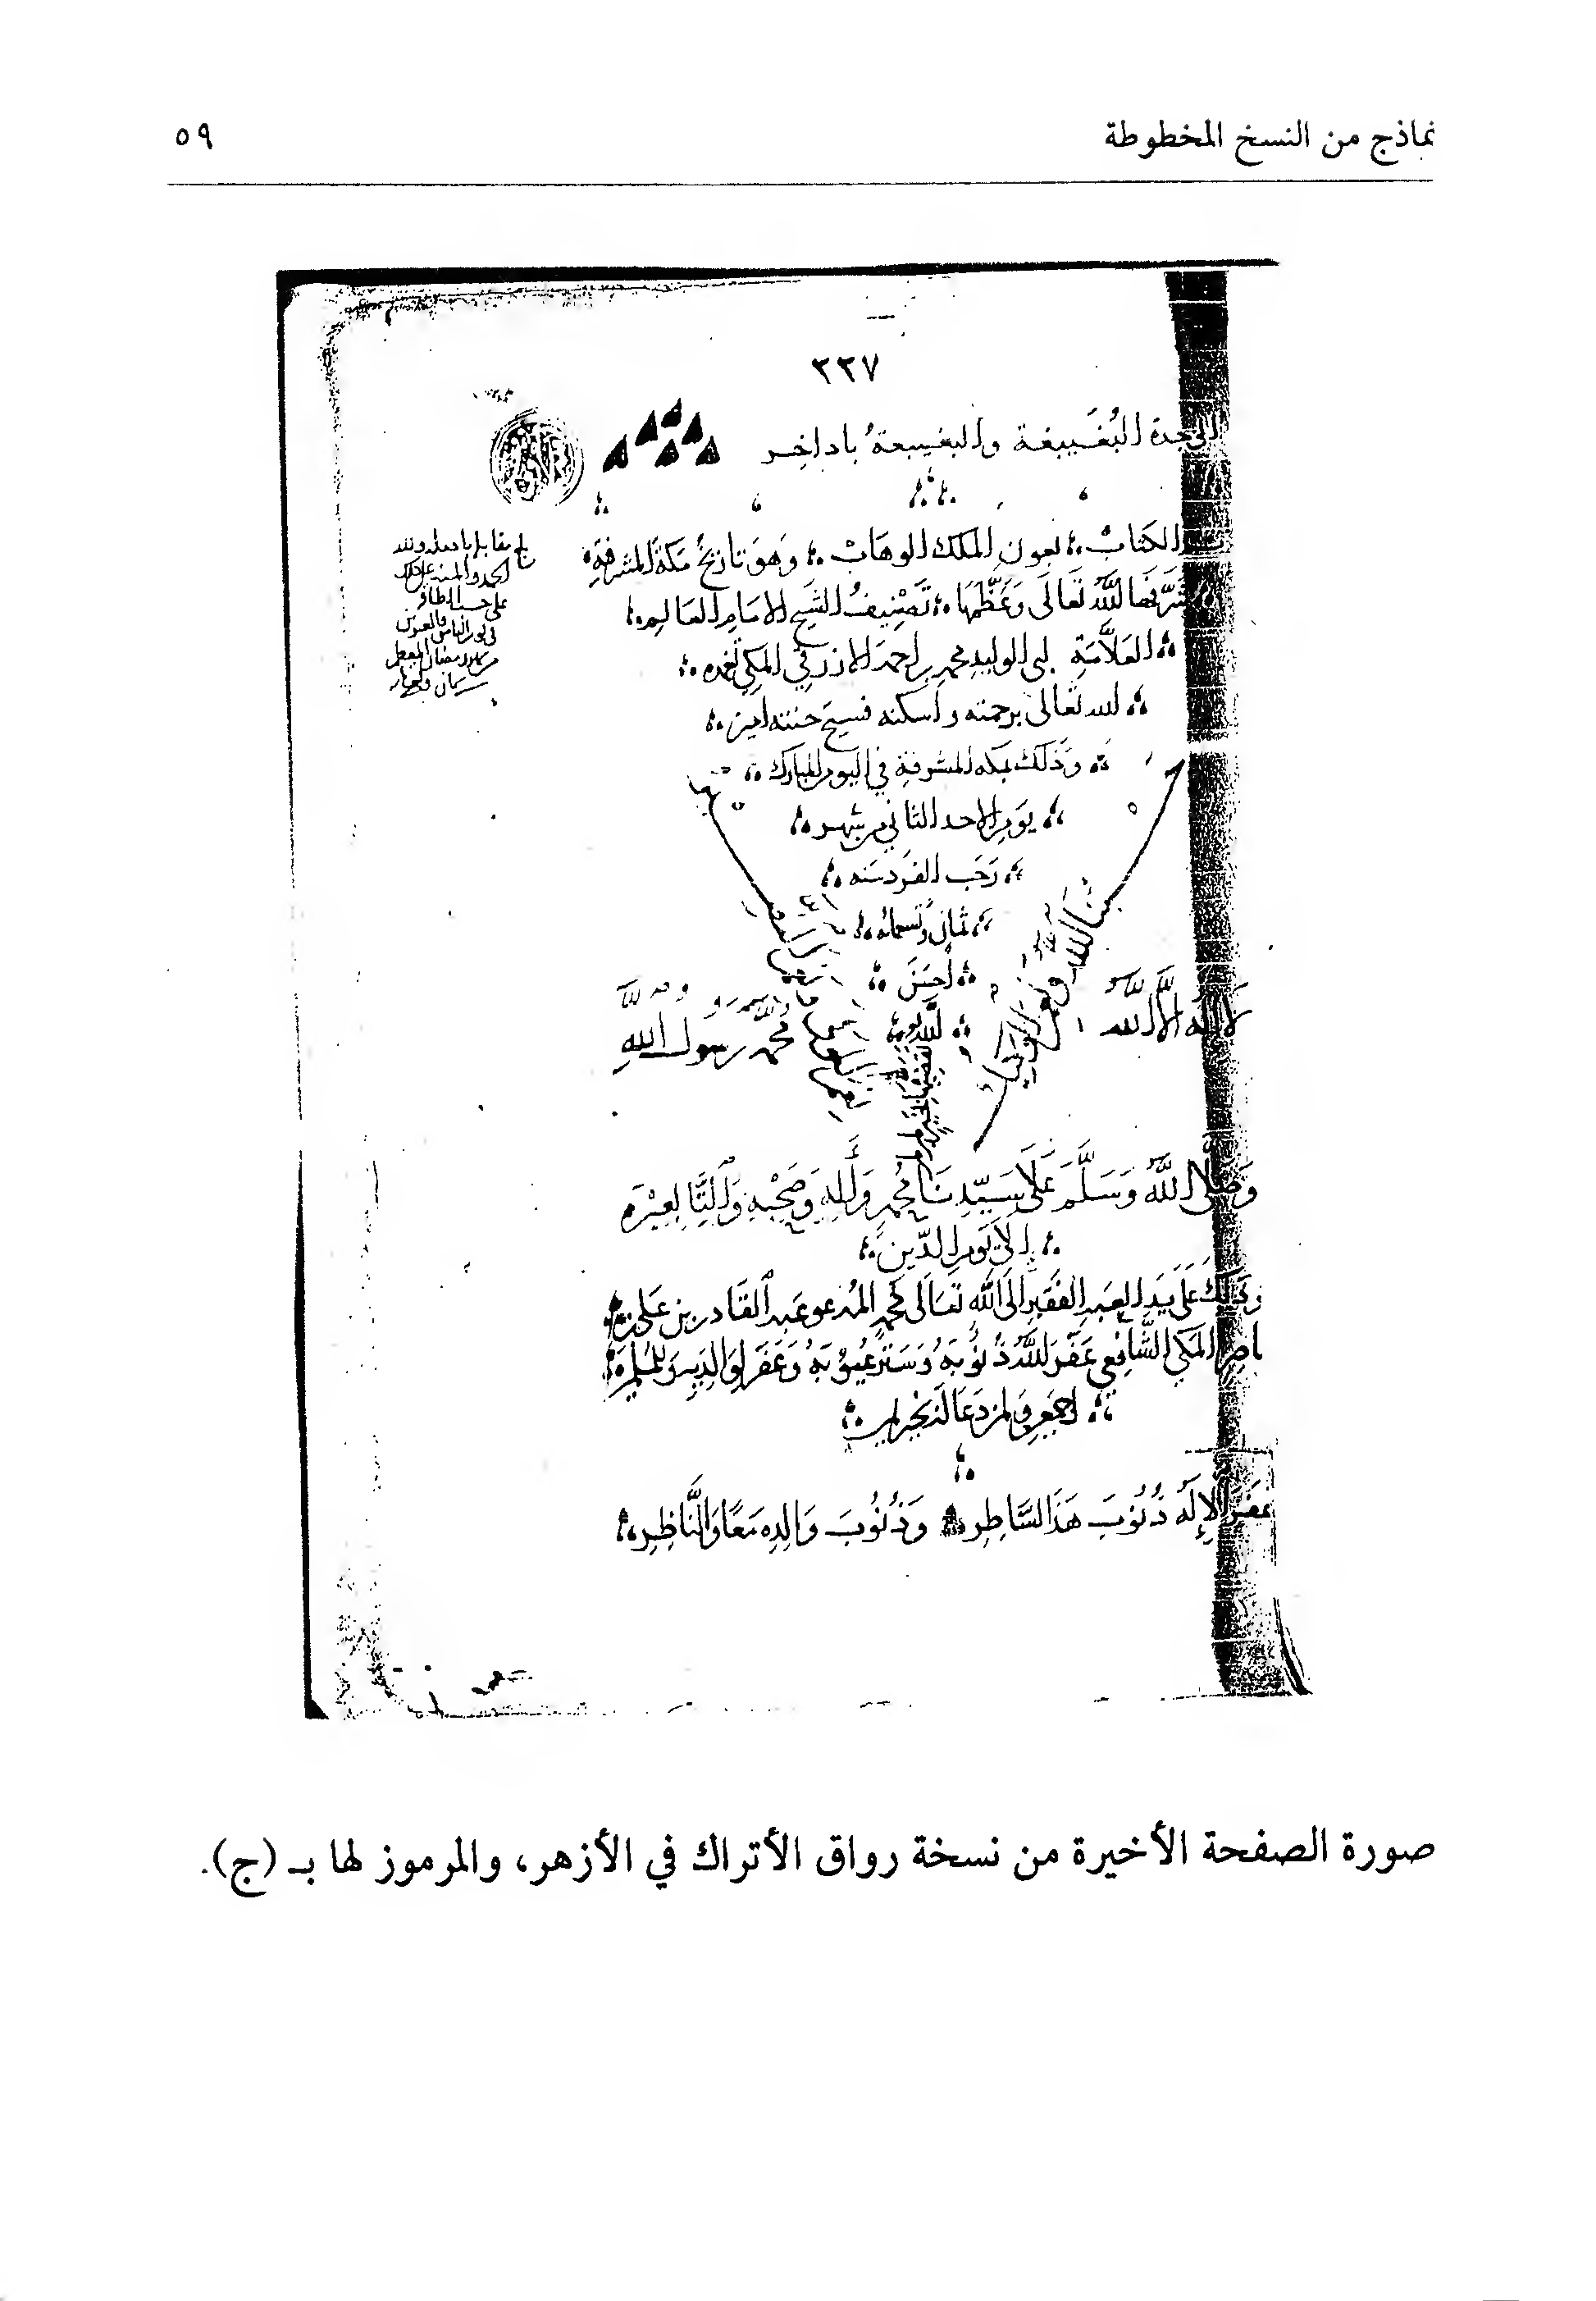 نماذج من النسخ المخطوطة ٥٩
٣٣٧
البغيبغة والبغيبغة باداخر
الكتاب بعون الملك الوهاب وهو تاريخ مكة المشرفة
شرفها الله تعالى وعظمها تصنيف الشيخ الامام العالم
العلامة ابى الوليد محمد بن احمد الازرقي المكي تغمده
الله تعالى برحمته واسكنه فسيح جنته امين
وذلك بمكه المشرفة في اليوم المبارك
يوم الاحد الثاني من شهر
رجب الفرد سنه
ثمان وتسعمائه
احسن
الله
لا إله إلا الله
محمد رسول الله
حسبنا الله ونعم الوكيل
وصلى الله وسلم على سيدنا محمد وأله وصحبه والتابعين
إلى يوم الدين
وذلك على يد العبد الفقير الى الله تعالى محمد المدعو عبد القادر بن على
المكي الشافعي غفر الله ذنوبه وستر عيوبه وغفر لوالديه وللمسلمين
اجمعين ولمن دعا لهم بخير امين
غفر الإله ذنوب هذا الساطر وذنوب والده معا والناظر
صورة الصفحة الأخيرة من نسخة رواق الأتراك في الأزهر، والمرموز لها بـ (ج).